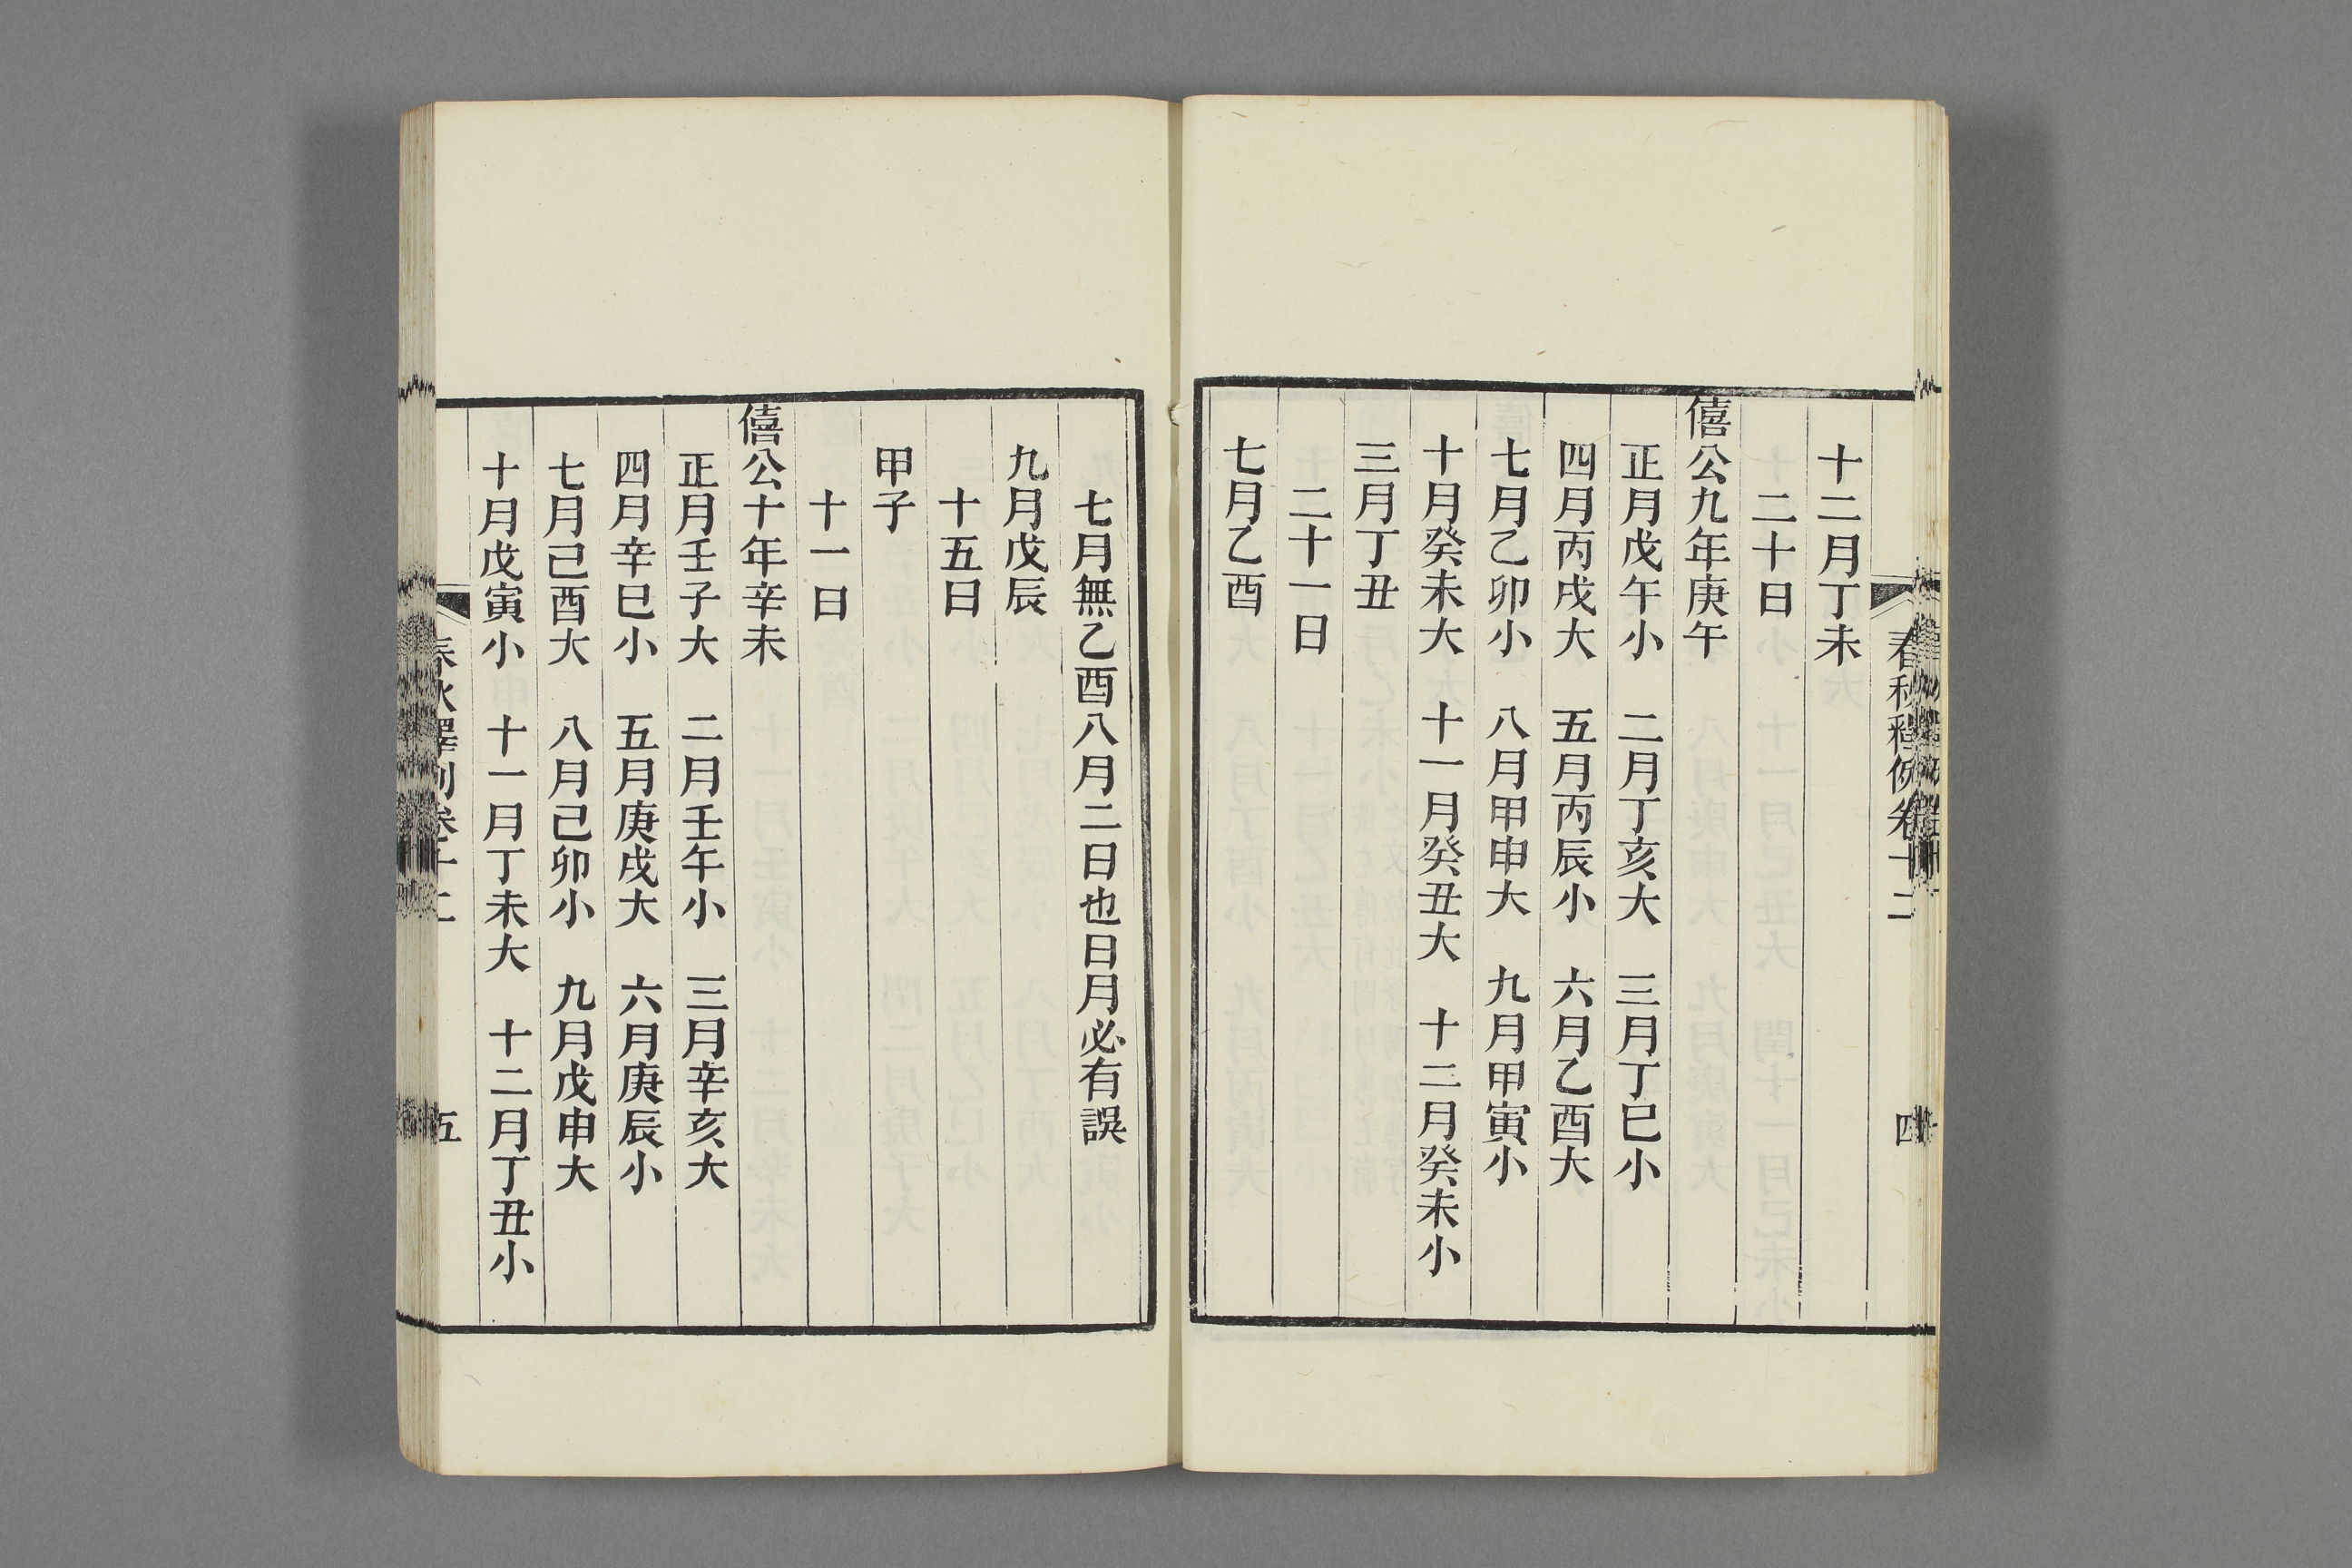 春秋釋例卷十二
四
十二月丁未
二十日
僖公九年庚午
正月戊午小 二月丁亥大 三月丁巳小
四月丙戌大 五月丙辰小 六月乙酉大
七月乙卯小 八月甲申大 九月甲寅小
十月癸未大 十一月癸丑大 十二月癸未小
三月丁丑
二十一日
七月乙酉
七月無乙酉八月二日也日月必有誤
九月戊辰
十五日
甲子
十一日
僖公十年辛未
正月壬子大 二月壬午小 三月辛亥大
四月辛巳小 五月庚戌大 六月庚辰小
七月己酉大 八月己卯小 九月戊申大
十月戊寅小 十一月丁未大 十二月丁丑小
春秋釋例卷十二
五